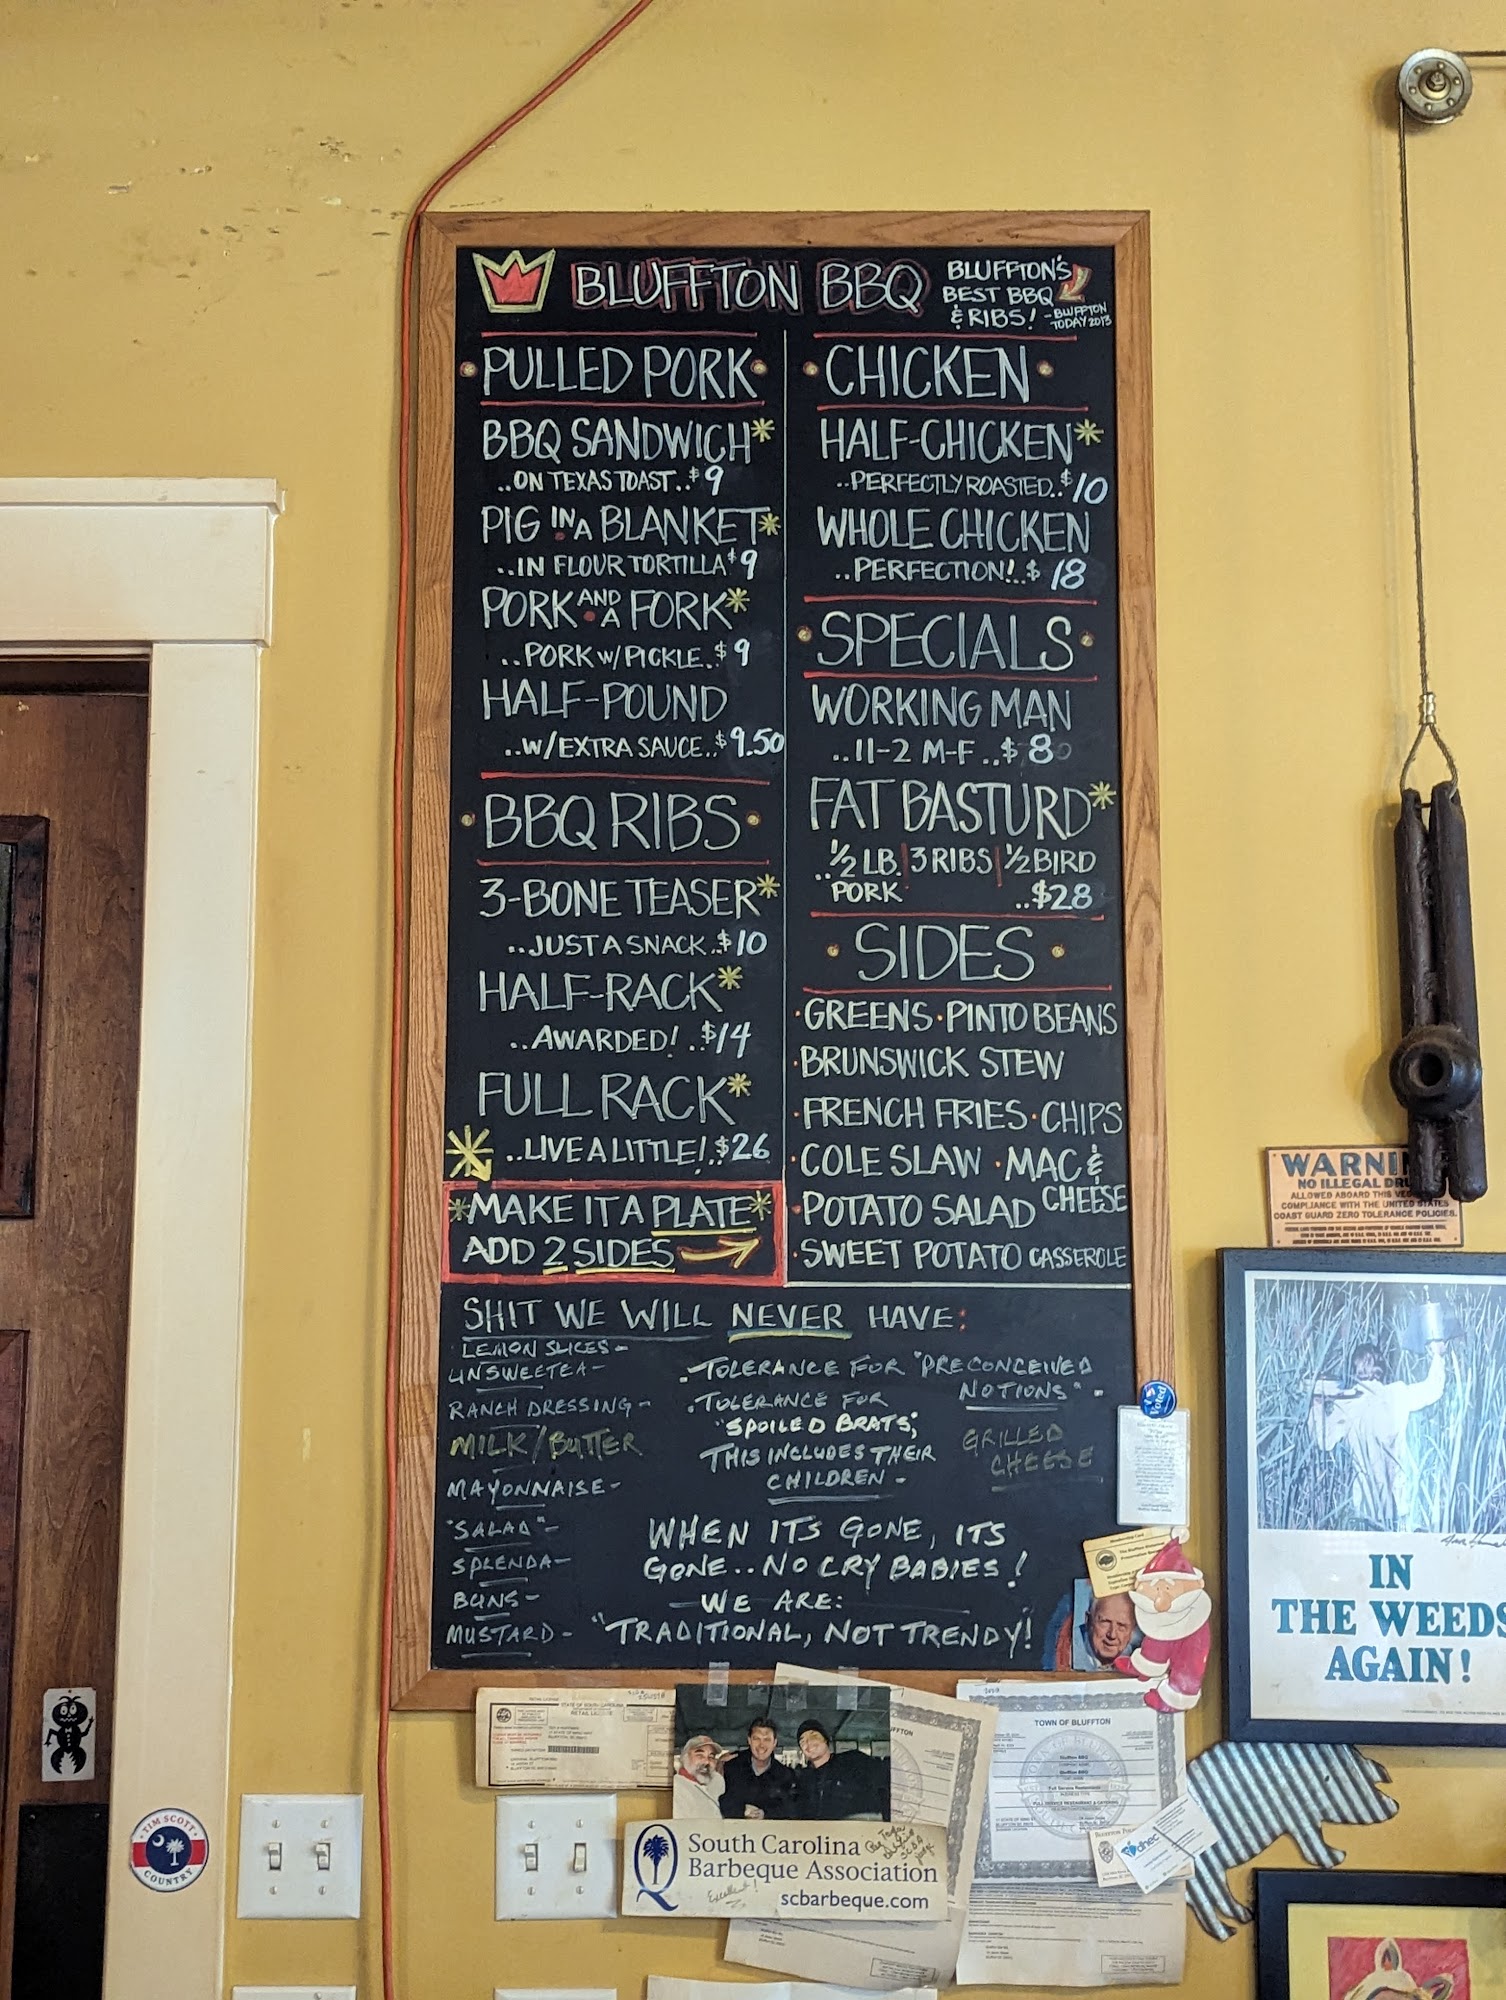 BLUFFTON BBQ
BLUFFTON'S
BEST BBQ
& RIBS! -BLUFFTON
TODAY 2013
PULLED PORK
BBQ SANDWICH*
..ON TEXAS TOAST..$9
PIG IN A BLANKET*
..IN FLOUR TORTILLA $9
PORK AND A FORK*
..PORK W/PICKLE..$9
HALF-POUND
..W/EXTRA SAUCE..$9.50
BBQ RIBS
3-BONE TEASER*
..JUST A SNACK..$10
HALF-RACK*
..AWARDED!..$14
FULL RACK*
..LIVE A LITTLE!..$26
*MAKE IT A PLATE*
ADD 2 SIDES
CHICKEN
HALF-CHICKEN*
..PERFECTLY ROASTED..$10
WHOLE CHICKEN
..PERFECTION!..$18
SPECIALS
WORKING MAN
..11-2 M-F..$8
FAT BASTURD*
..1/2 LB. | 3 RIBS | 1/2 BIRD
PORK ..$28
SIDES
·GREENS ·PINTO BEANS
·BRUNSWICK STEW
·FRENCH FRIES ·CHIPS
·COLE SLAW ·MAC &
CHEESE
·POTATO SALAD
·SWEET POTATO CASSEROLE
SHIT WE WILL NEVER HAVE:
LEMON SLICES-
UNSWEETEA-
RANCH DRESSING-
MILK/BUTTER
MAYONNAISE-
"SALAD"-
SPLENDA-
BUNS-
MUSTARD-
·TOLERANCE FOR "PRECONCEIVED
NOTIONS"-
·TOLERANCE FOR
"SPOILED BRATS,"
THIS INCLUDES THEIR
CHILDREN-
GRILLED
CHEESE
WHEN ITS GONE, ITS
GONE..NO CRY BABIES!
WE ARE:
"TRADITIONAL, NOT TRENDY!
I Voted
WARNI
NO ILLEGAL DRU
ALLOWED ABOARD THIS VES
COMPLIANCE WITH THE UNITED STATES
COAST GUARD ZERO TOLERANCE POLICIES.
IN
THE WEEDS
AGAIN!
TIM SCOTT
COUNTRY
STATE OF SOUTH CAROLINA
RETAIL LICENSE
South Carolina
Barbeque Association
scbarbeque.com
Excellent!
BLUFFTON
TOWN OF BLUFFTON
Bluffton BBQ
Bluffton BBQ
Full Service Restaurant
dhec